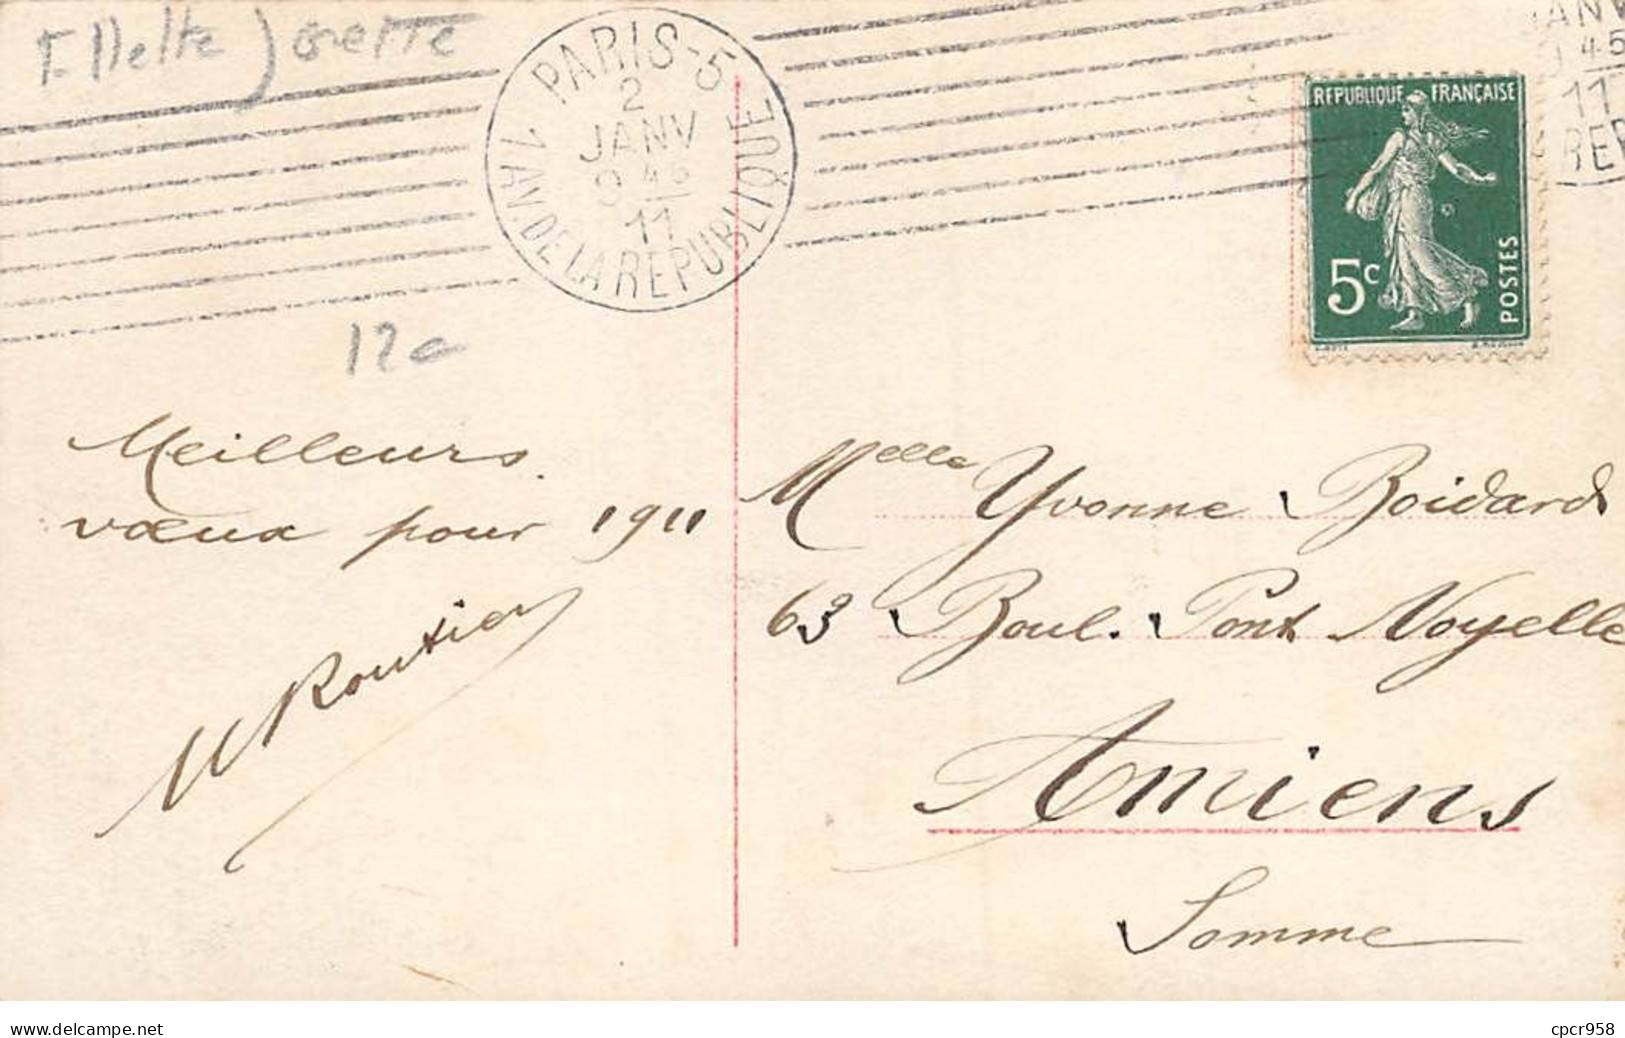 PARIS-5
2
JANV
9 45
11
1 AV. DE LA REPUBLIQUE
JANV
45
11
REP
REPUBLIQUE FRANÇAISE
5c
POSTES
12e
Meilleurs
vœux pour 1911
Routier
Melle Yvonne Boidard
63 Boul. Pont Noyelle
Amiens
Somme
delcampe.net
cpcr958